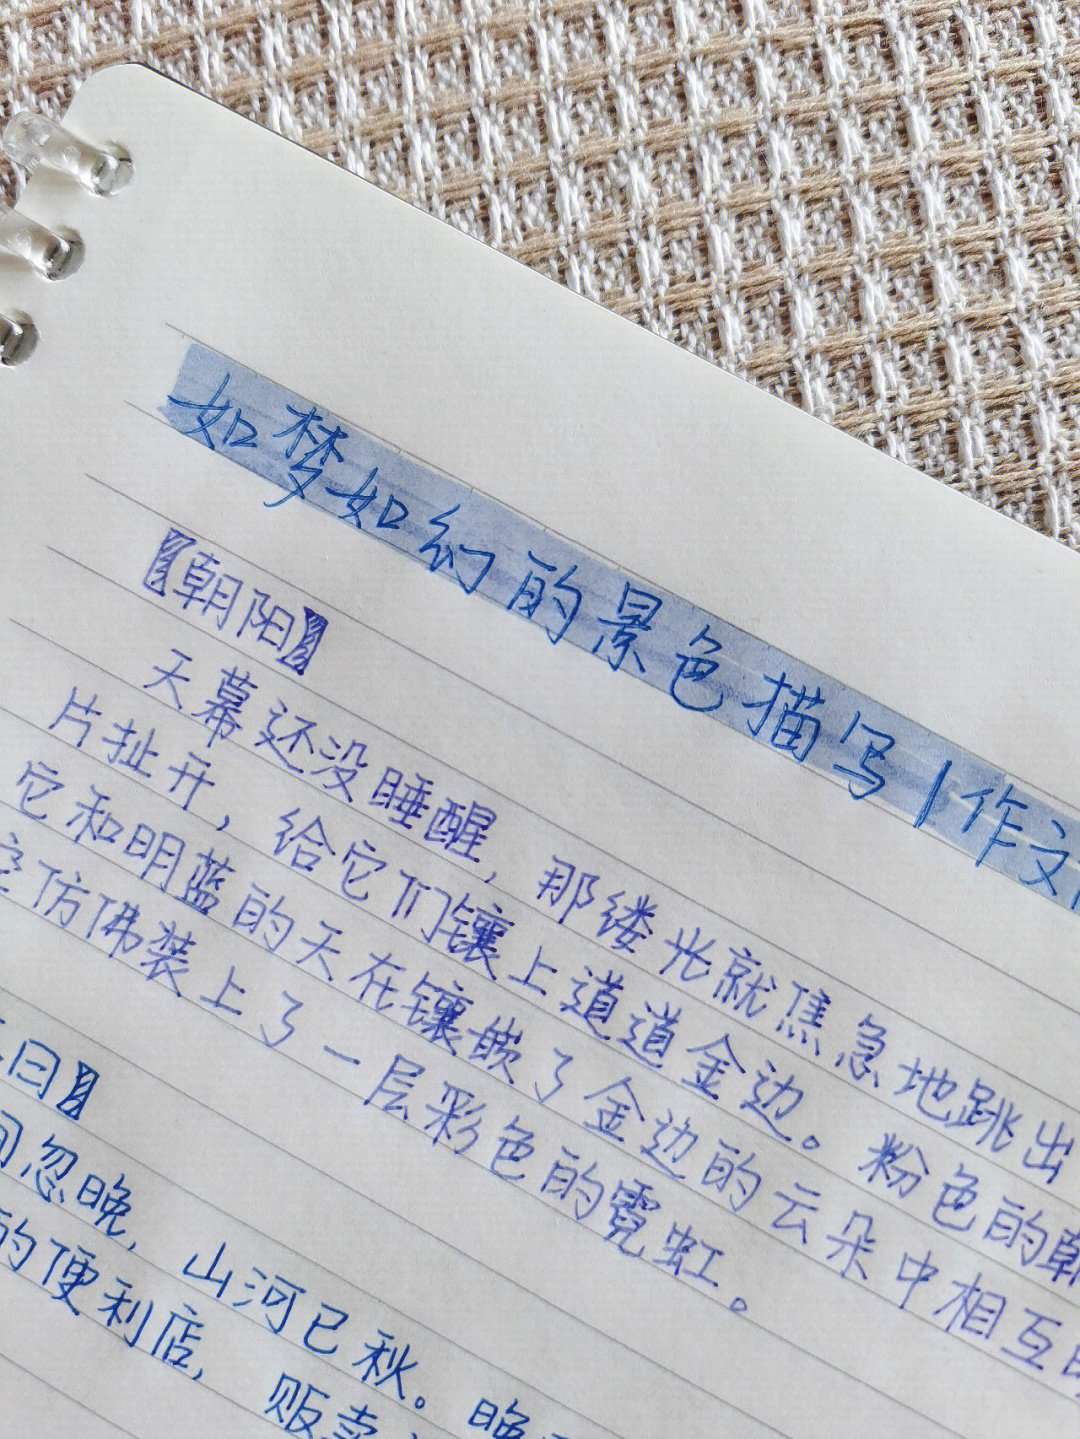 如梦如幻的景色描写|作文
【朝阳】
天幕还没睡醒，那缕光就焦急地跳出
片扯开，给它们镶上道道金边。粉色的朝
它和明蓝的天在镶嵌了金边的云朵中相互
仿佛装上了一层彩色的霓虹。
日】
间忽晚，山河已秋。晚
的便利店，贩卖